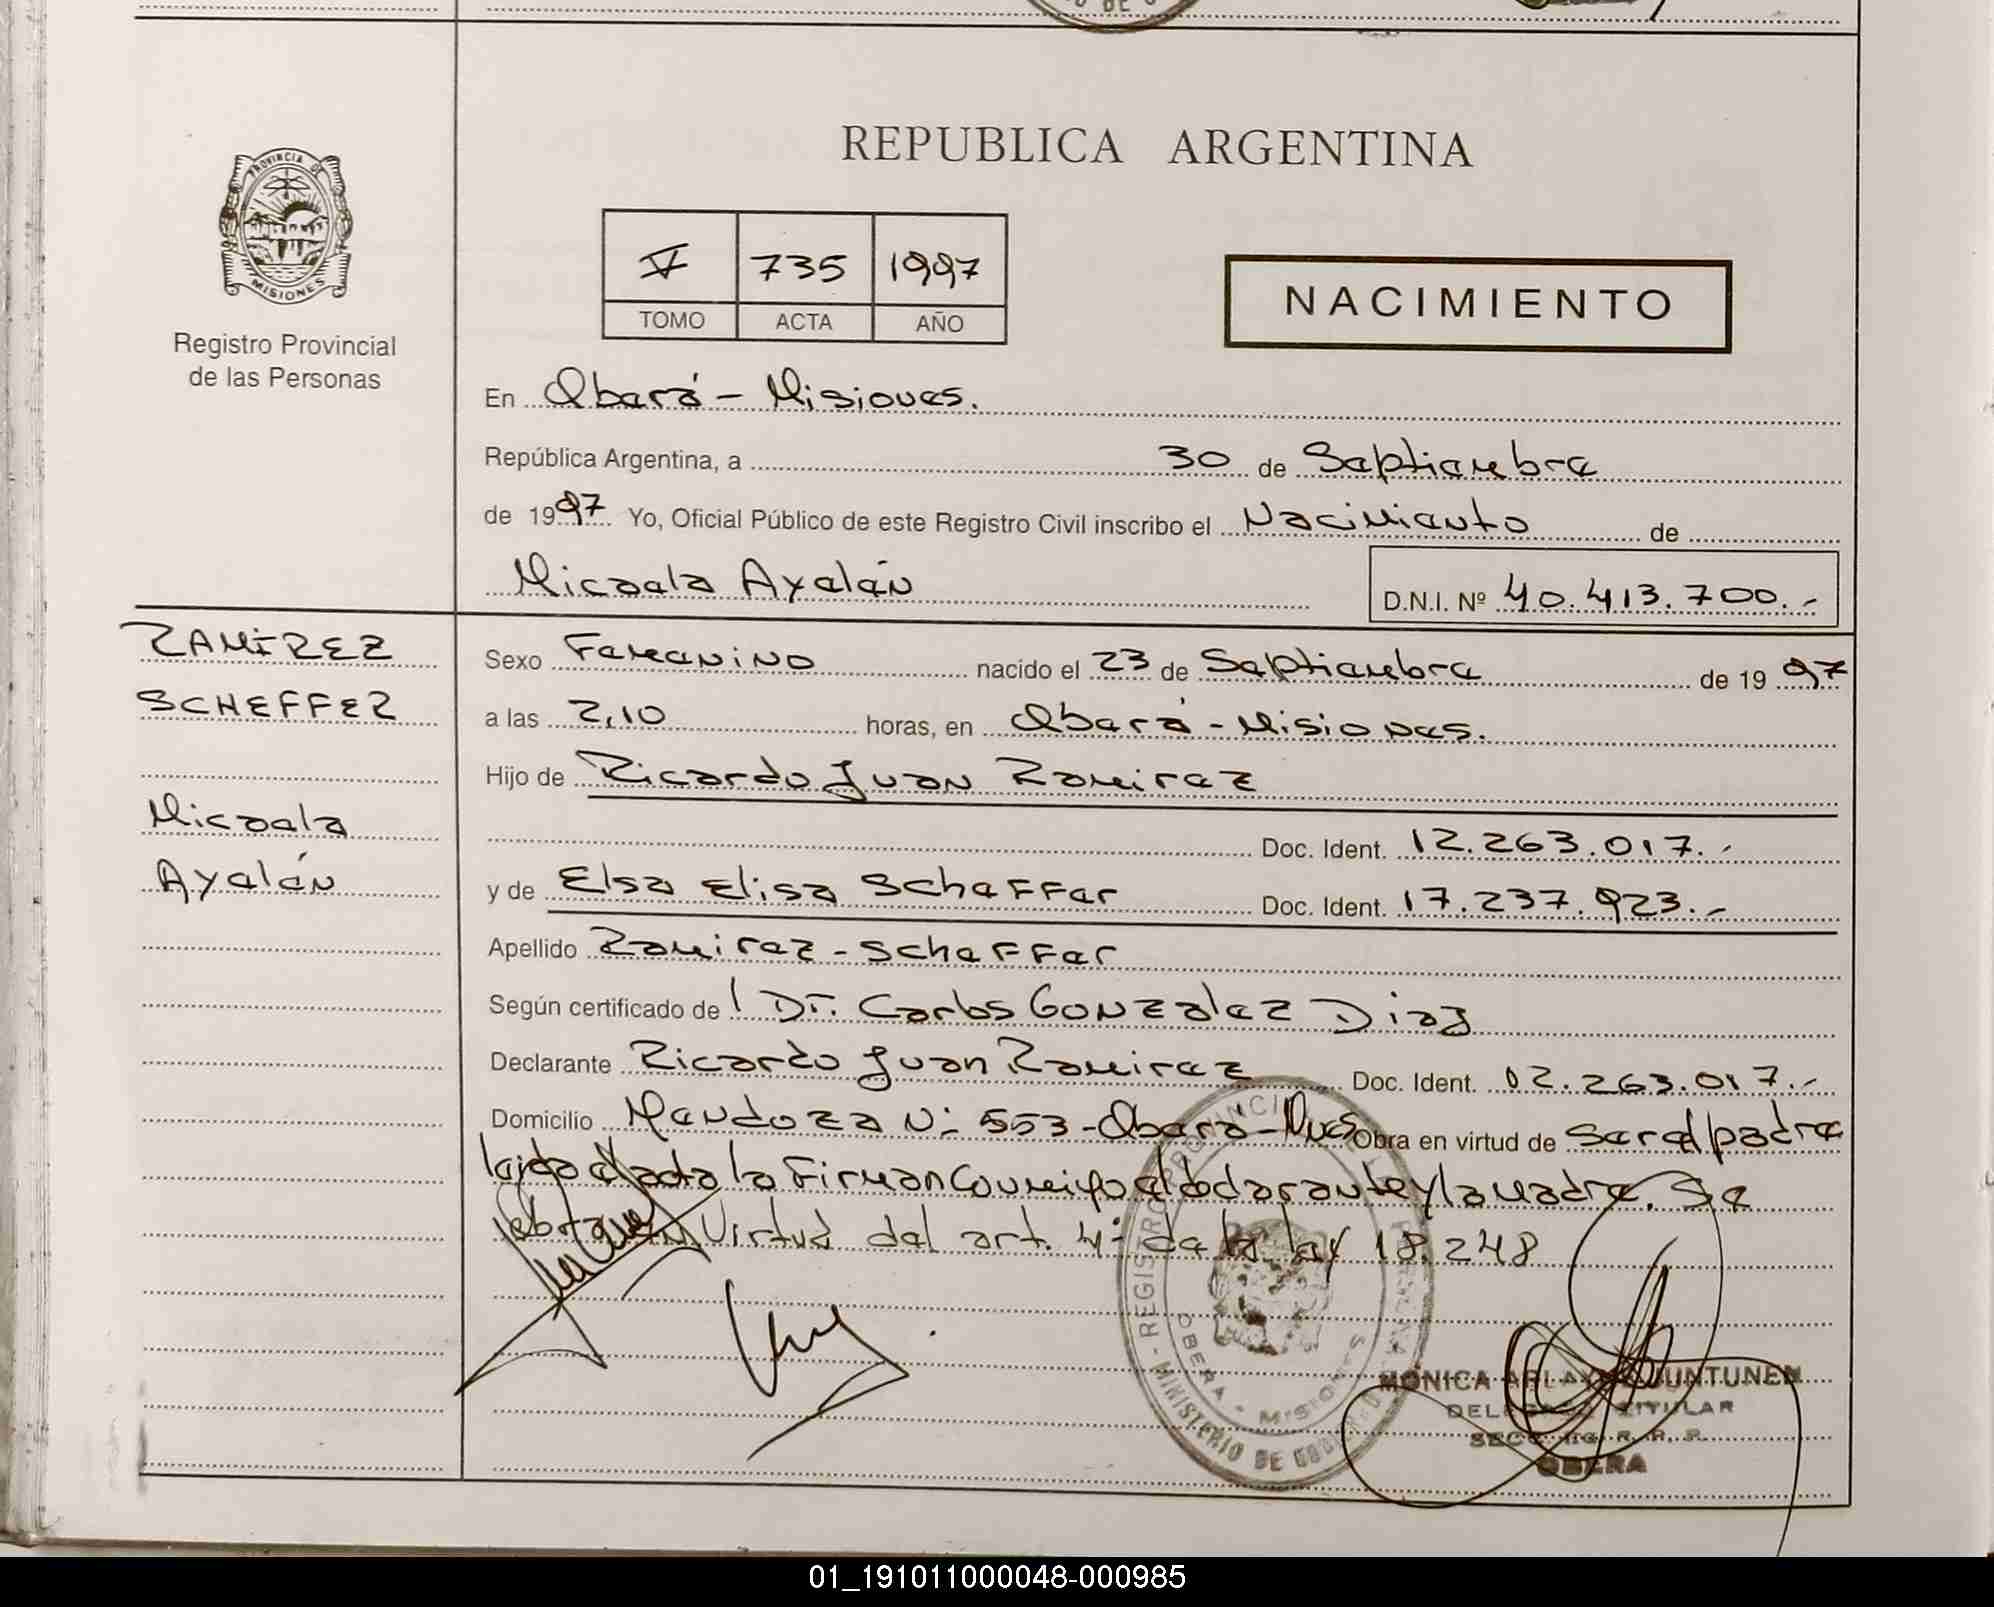 REPUBLICA ARGENTINA
PROVINCIA DE
MISIONES
Registro Provincial
de las Personas
V 735 1997
TOMO ACTA AÑO
NACIMIENTO
En Oberá - Misiones.
República Argentina, a 30 de Septiembre
de 1997 Yo, Oficial Público de este Registro Civil inscribo el Nacimiento de
Micaela Ayelén D.N.I. Nº 40.413.700.-
RAMIREZ
SCHEFFER
Micaela
Ayelén
Sexo Femenino nacido el 23 de Septiembre de 1997
a las 2,10 horas, en Oberá - Misiones.
Hijo de Ricardo Juan Ramirez
Doc. Ident. 12.263.017.-
y de Elsa Elisa Scheffer Doc. Ident. 17.237.923.-
Apellido Ramirez - Scheffer
Según certificado de l Dr. Carlos Gonzalez Diaz
Declarante Ricardo Juan Ramirez Doc. Ident. 12.263.017.-
Domicilio Mendoza Nº 553 - Oberá - Mnes Obra en virtud de ser el padre
leida el acta la firman conmigo el declarante y la madre. Se
en Virtud del art. 4º de la ley 18.248
REGISTRO PROVINCIAL DE LAS PERSONAS
OBERA - MISIONES
MINISTERIO DE GOBIERNO
MONICA JUNTUNEN
DELEGADO TITULAR
R. P. P.
OBERA
01_191011000048-000985